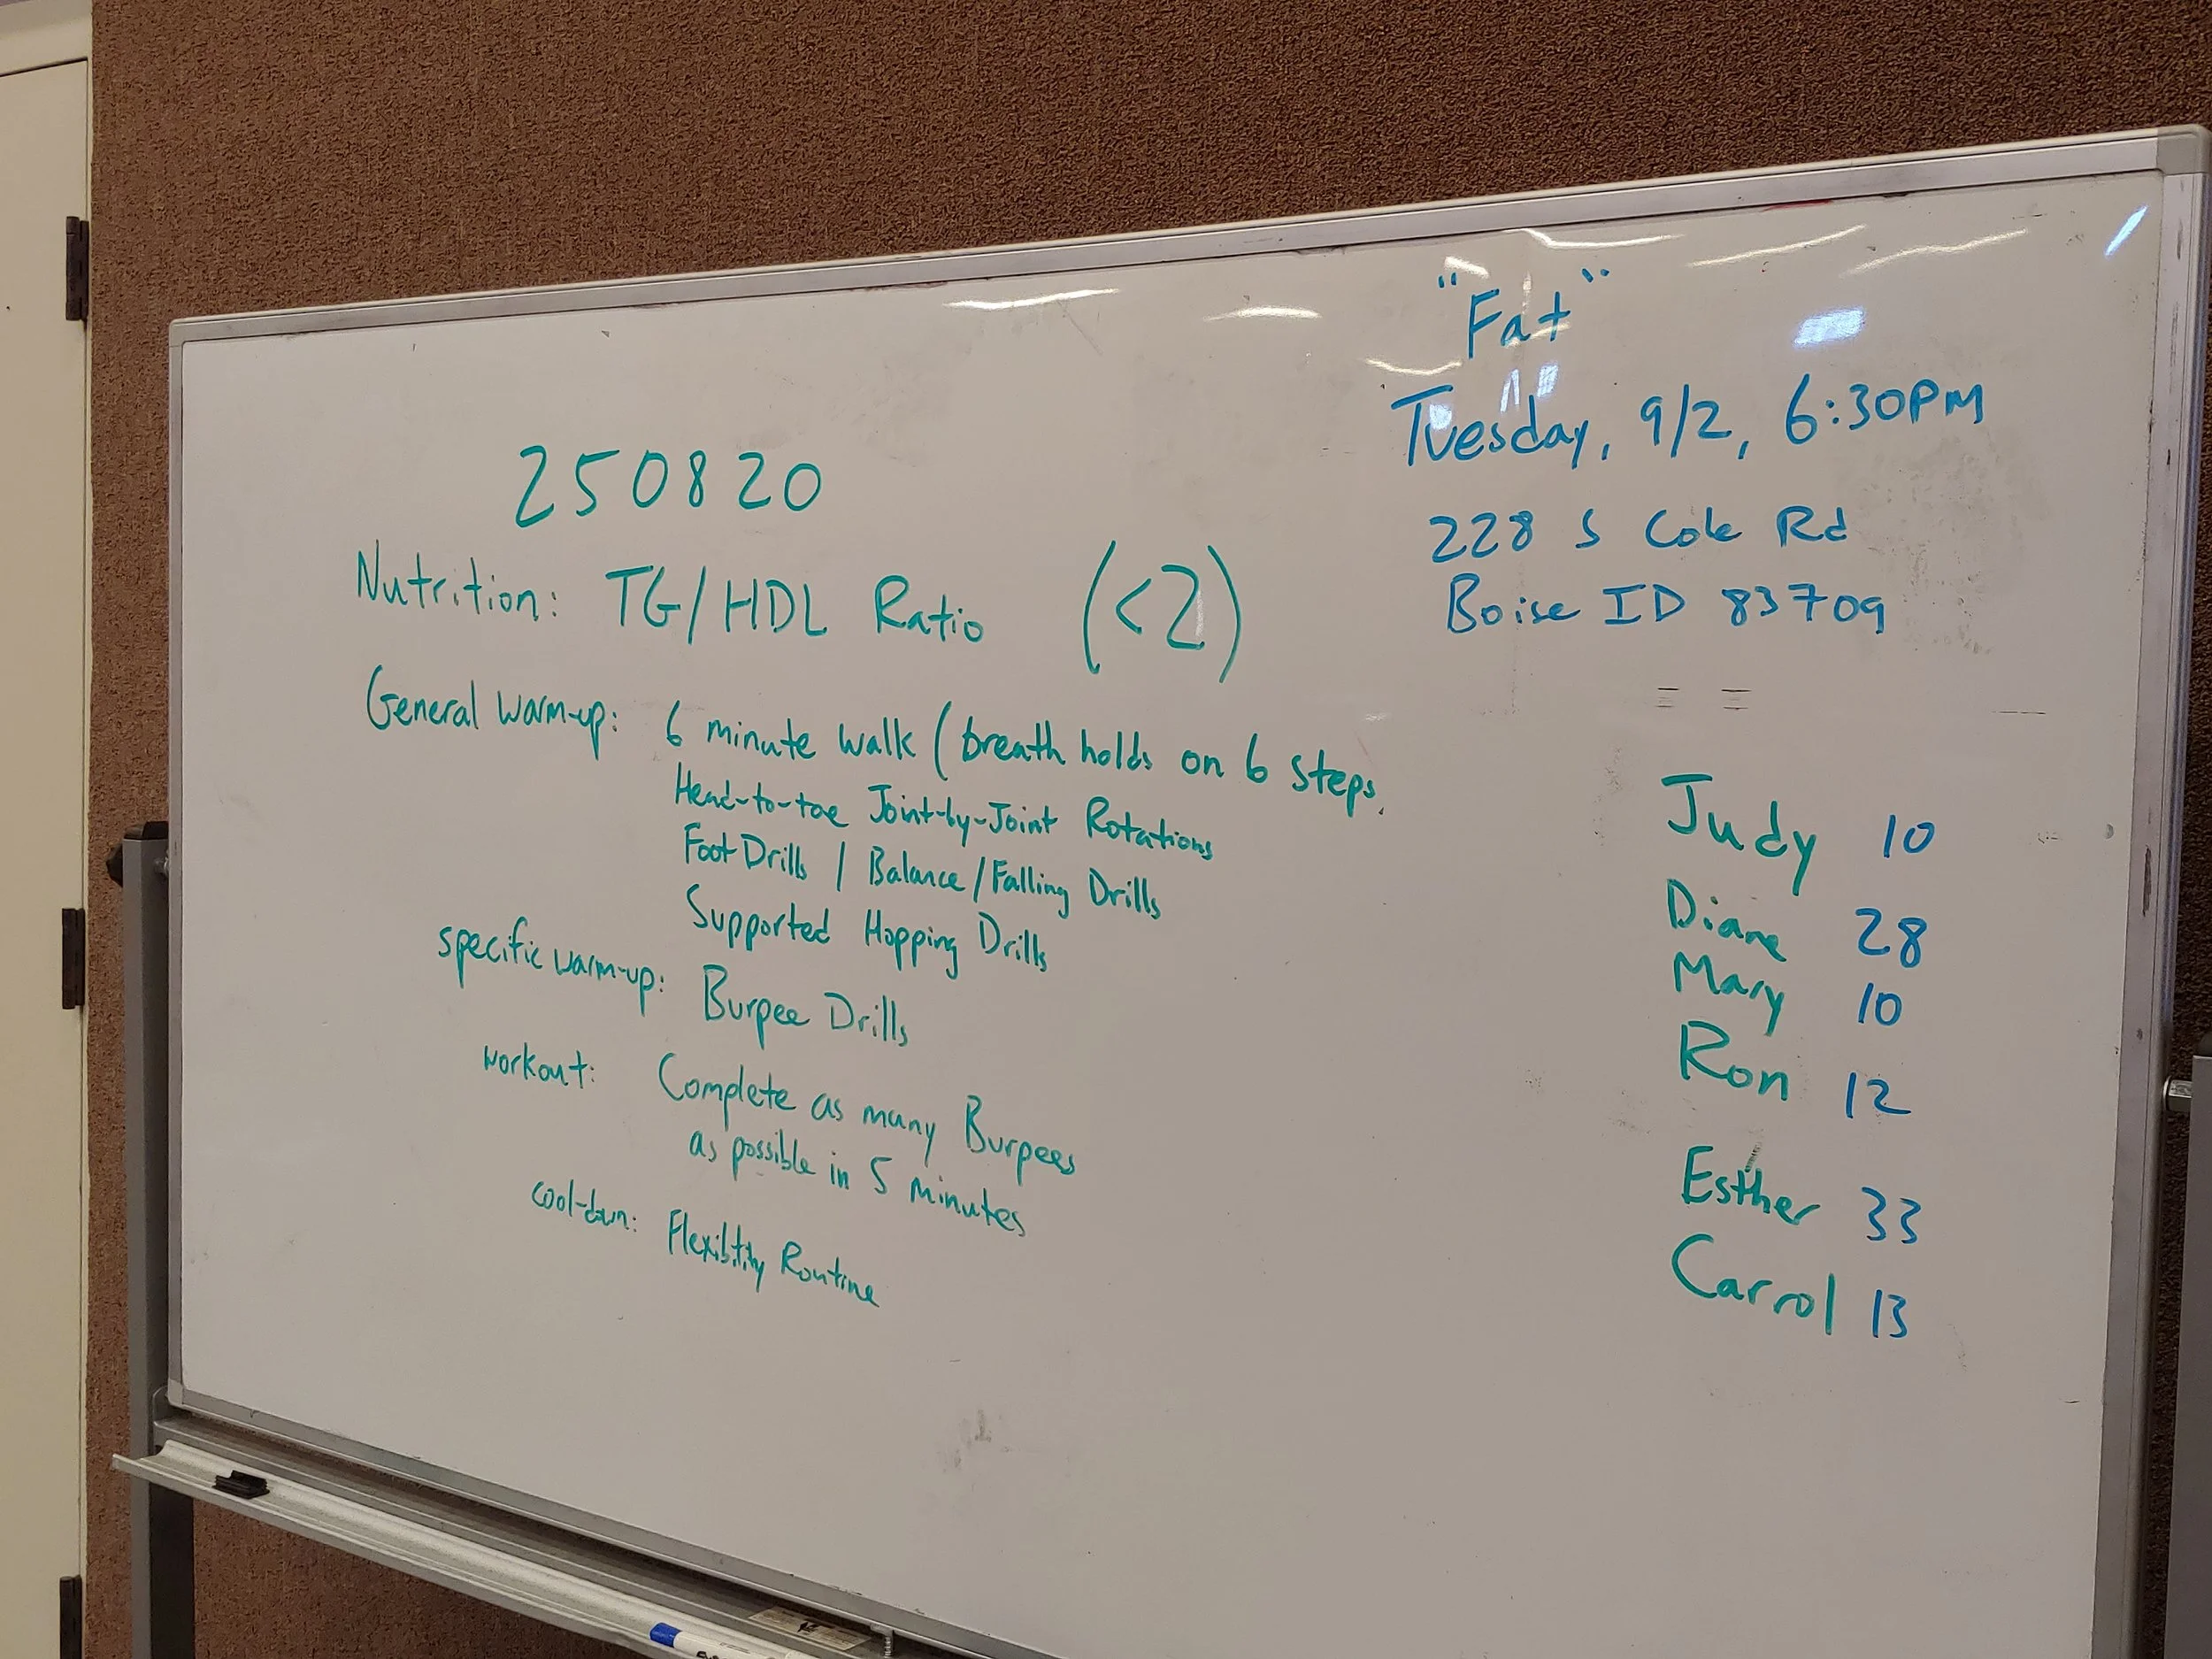 250820
Nutrition: TG/HDL Ratio (<2)
General Warm-up: 6 minute walk (breath holds on 6 steps.
Head-to-toe Joint-by-Joint Rotations
Foot Drills / Balance/Falling Drills
Supported Hopping Drills
specific warm-up: Burpee Drills
workout: Complete as many Burpees
as possible in 5 minutes
cool-down: Flexiblity Routine
"Fat"
Tuesday, 9/2, 6:30PM
228 S Cole Rd
Boise ID 83709
Judy 10
Diane 28
Mary 10
Ron 12
Esther 33
Carrol 13